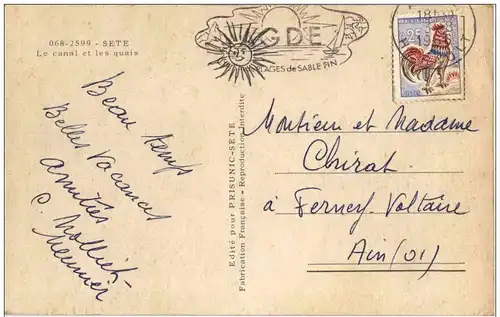 068-2599 - SETE
Le canal et les quais
AGDE
PLAGES de SABLE FIN
18H
0,25
Beau temps
Belles Vacances
amitiés
C. Molliet-
Meunier
Edité pour PRISUNIC-SETE
Fabrication Française - Reproduction Interdite
Monsieur et Madame
Chirat
à Ferney-Voltaire
Ain (01)